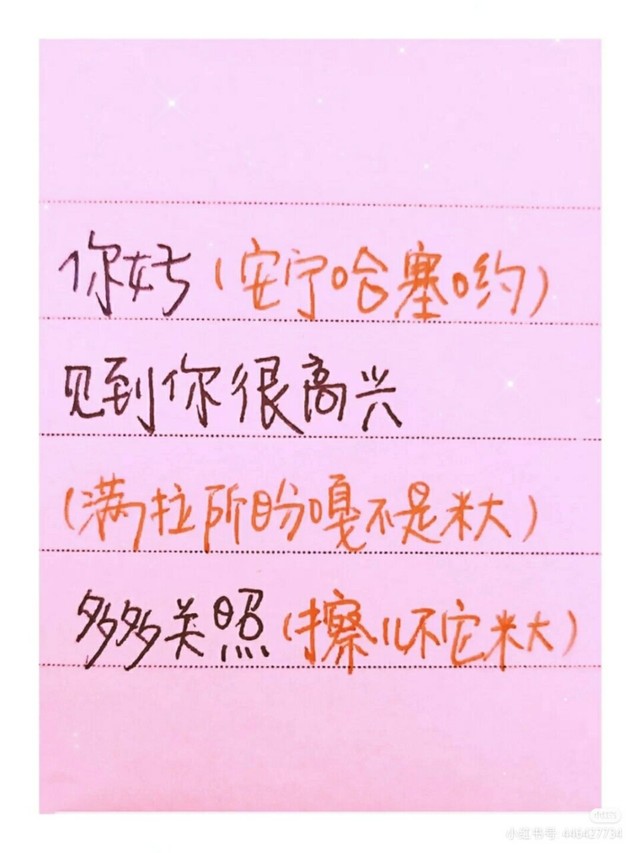 你好(安宁哈塞哟)
见到你很高兴
(满拉所盼嘎不是米大)
多多关照(擦儿不它米大)
小红书号:448427734